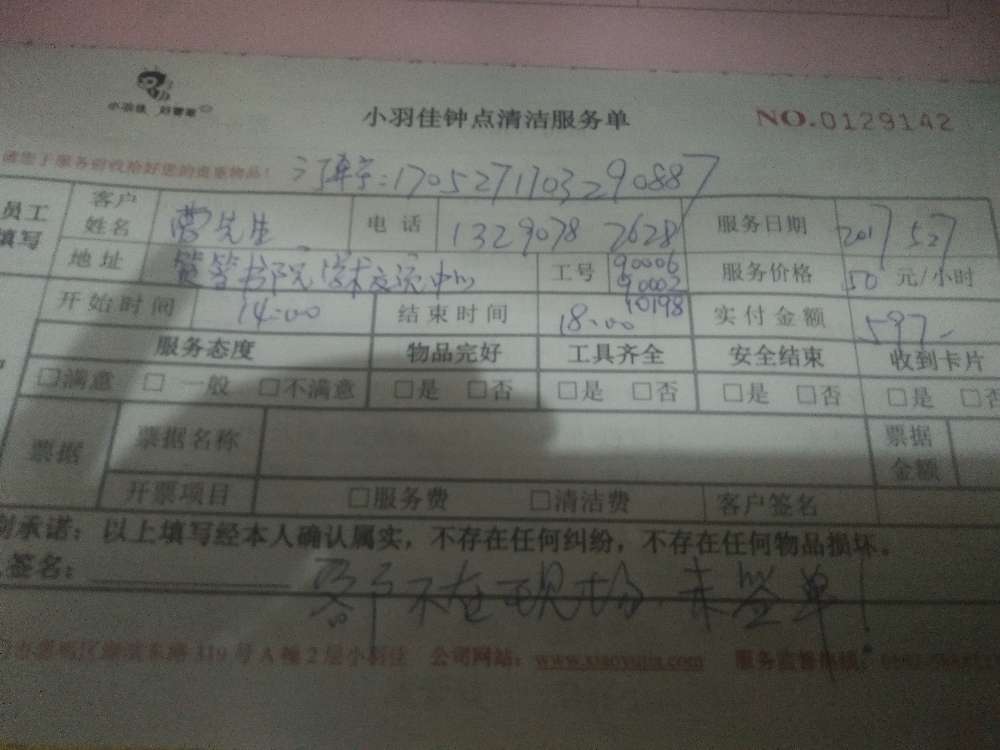 小羽佳 好管家
小羽佳钟点清洁服务单
NO.0129142
请您于服务前收拾好您的贵重物品!
1705271103290887
员工填写
客户姓名 曹先生 电话 13290782628 服务日期 2017 5 27
地址 筼筜书院 学术交流中心 工号 90006 90002 10198 服务价格 50 元/小时
开始时间 14:00 结束时间 18:00 实付金额 597-
服务态度 物品完好 工具齐全 安全结束 收到卡片
□满意 □一般 □不满意 □是 □否 □是 □否 □是 □否 □是 □否
票据 票据名称 票据金额
开票项目 □服务费 □清洁费 客户签名
承诺：以上填写经本人确认属实，不存在任何纠纷，不存在任何物品损坏。
签名：
客户不在现场,未签单!
119号A幢2层小羽佳 公司网站：www.xiaoyujia.com 服务监督热线：